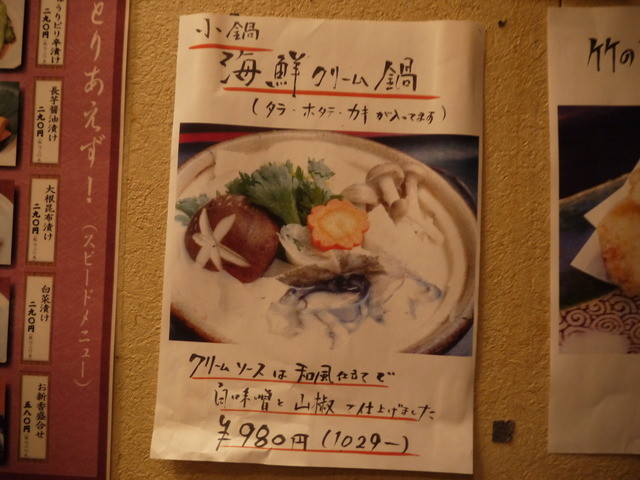 小鍋
海鮮クリーム鍋
(タラ・ホタテ・カキが入ってます)
クリームソースは和風仕立てで
白味噌と山椒で仕上げました
¥980円(1029-)
とりあえず!(スピードメニュー)
うりピリ辛漬け
二九〇円
長芋醤油漬け
二九〇円
大根昆布漬け
二九〇円
白菜漬け
二九〇円
お新香盛合せ
五八〇円
竹の